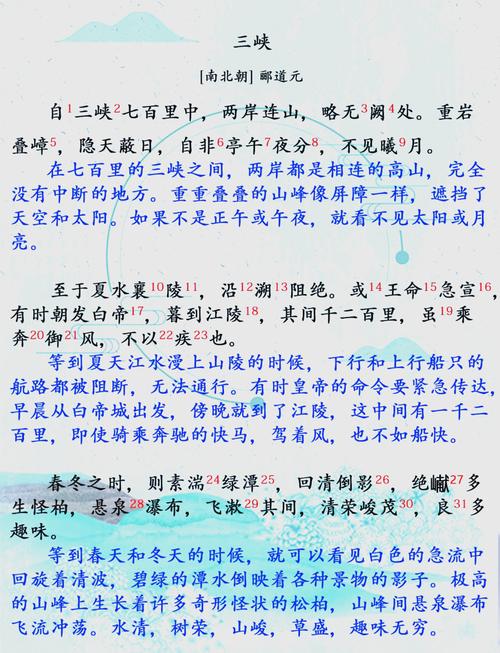 三峡
[南北朝] 郦道元
自1三峡2七百里中，两岸连山，略无3阙4处。重岩
叠嶂5，隐天蔽日，自非6亭午7夜分8，不见曦9月。
在七百里的三峡之间，两岸都是相连的高山，完全
没有中断的地方。重重叠叠的山峰像屏障一样，遮挡了
天空和太阳。如果不是正午或午夜，就看不见太阳或月
亮。
至于夏水襄10陵11，沿12溯13阻绝。或14王命15急宣16，
有时朝发白帝17，暮到江陵18，其间千二百里，虽19乘
奔20御21风，不以22疾23也。
等到夏天江水漫上山陵的时候，下行和上行船只的
航路都被阻断，无法通行。有时皇帝的命令要紧急传达，
早晨从白帝城出发，傍晚就到了江陵，这中间有一千二
百里，即使骑乘奔驰的快马，驾着风，也不如船快。
春冬之时，则素湍24绿潭25，回清倒影26，绝巘27多
生怪柏，悬泉28瀑布，飞漱29其间，清荣峻茂30，良31多
趣味。
等到春天和冬天的时候，就可以看见白色的急流中
回旋着清波，碧绿的潭水倒映着各种景物的影子。极高
的山峰上生长着许多奇形怪状的松柏，山峰间悬泉瀑布
飞流冲荡。水清，树荣，山峻，草盛，趣味无穷。